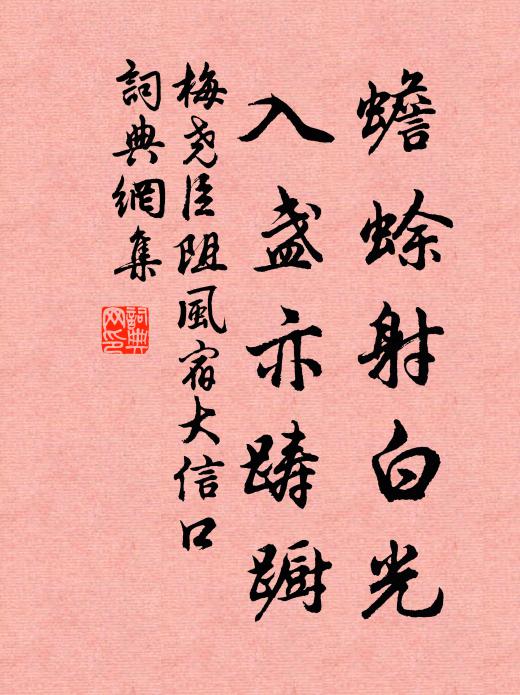 蟾蜍射白光
入盏亦踌蹰
梅尧臣阻風宿大信口
詞典網集
詞典网印